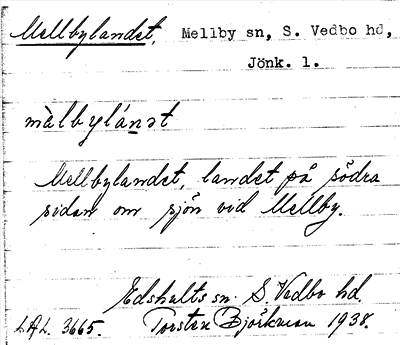 Mellbylandet, Mellby sn, S. Vedbo hd,
Jönk. l.
màlbylánət
Mellbylandet, landet på södra
sidan om sjön vid Mellby.
Edshults sn. S. Vedbo hd.
LAL 3665. Torsten Björkman 1938.